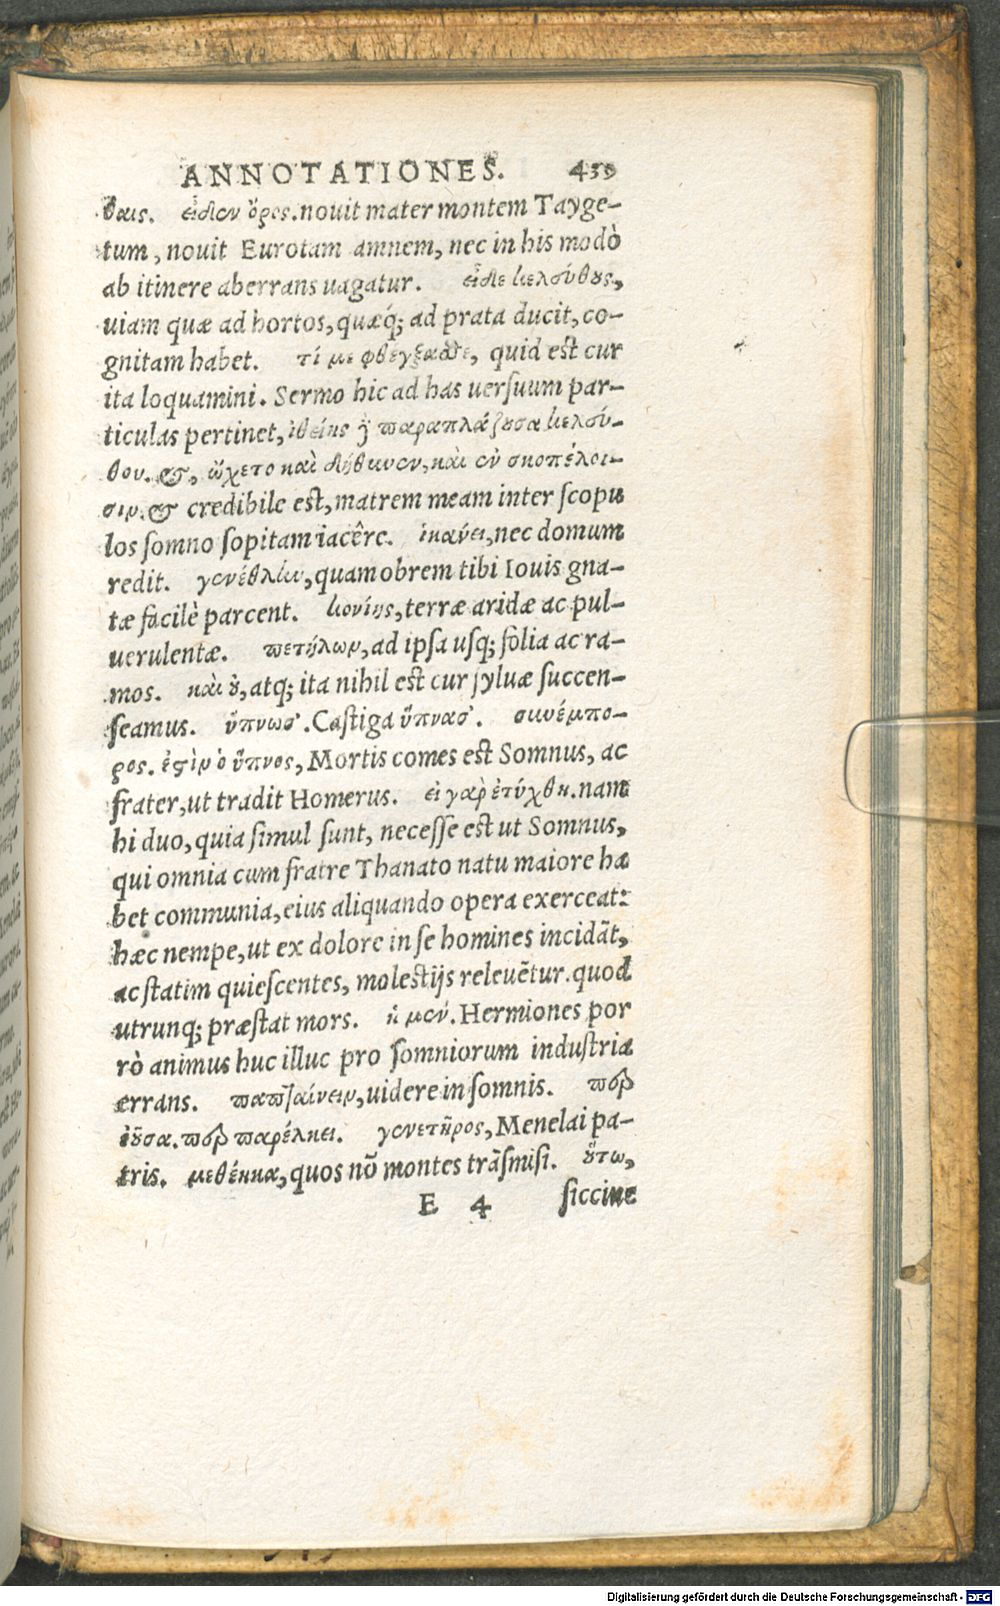 ANNOTATIONES. 459
θαις. εἶδεν ὄρος. nouit mater montem Tayge-
tum, nouit Eurotam amnem, nec in his modò
ab itinere aberrans uagatur. εἶδε κελούθους,
uiam quæ ad hortos, quæq; ad prata ducit, co-
gnitam habet. τί με φθεγξαϑε, quid est cur
ita loquamini. Sermo hic ad has uersuum par-
ticulas pertinet, ἰθείης ἢ παραπλάζουσα κελού-
θου. &, ᾤχετο καὶ δήθυνεν, καὶ ἐν σκοπέλοι-
σιν. & credibile est, matrem meam inter scopu
los somno sopitam iacêre. ἱκανει, nec domum
redit. γενέθλίω, quamobrem tibi Iouis gna-
tæ facilè parcent. κονίης, terræ aridæ ac pul-
uerulentæ. πετήλων, ad ipsa usq; folia ac ra-
mos. καὶ οὐ, atq; ita nihil est cur syluæ succen-
seamus. ὕπνωσ'. Castiga ὕπνας'. συνέμπο-
ρος. ἐστὶν ὁ ὕπνος, Mortis comes est Somnus, ac
frater, ut tradit Homerus. εἰ γαρ ἐτύχθη. nam
hi duo, quia simul sunt, necesse est ut Somnus,
qui omnia cum fratre Thanato natu maiore ha
bet communia, eius aliquando opera exerceat:
hæc nempe, ut ex dolore in se homines incidãt,
ac statim quiescentes, molestijs releuẽtur. quod
utrunq; præstat mors. ἡ μεν. Hermiones por
rò animus huc illuc pro somniorum industria
errans. παπταίνειν, uidere in somnis. παρ
ἐοῦσα. παρ παρέλκει. γενετῆρος, Menelai pa-
tris. μεθέηκα, quos nõ montes trãsmisi. οὕτω,
E 4 siccine
Digitalisierung gefördert durch die Deutsche Forschungsgemeinschaft - DFG